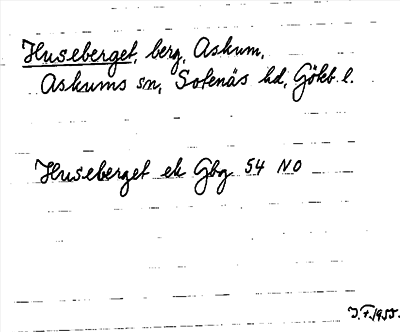 Huseberget, berg, Askum,
Askums sn, Sotenäs hd, Gökb. l.
Huseberget ek Gbg 54 NO
J.F. 1955.